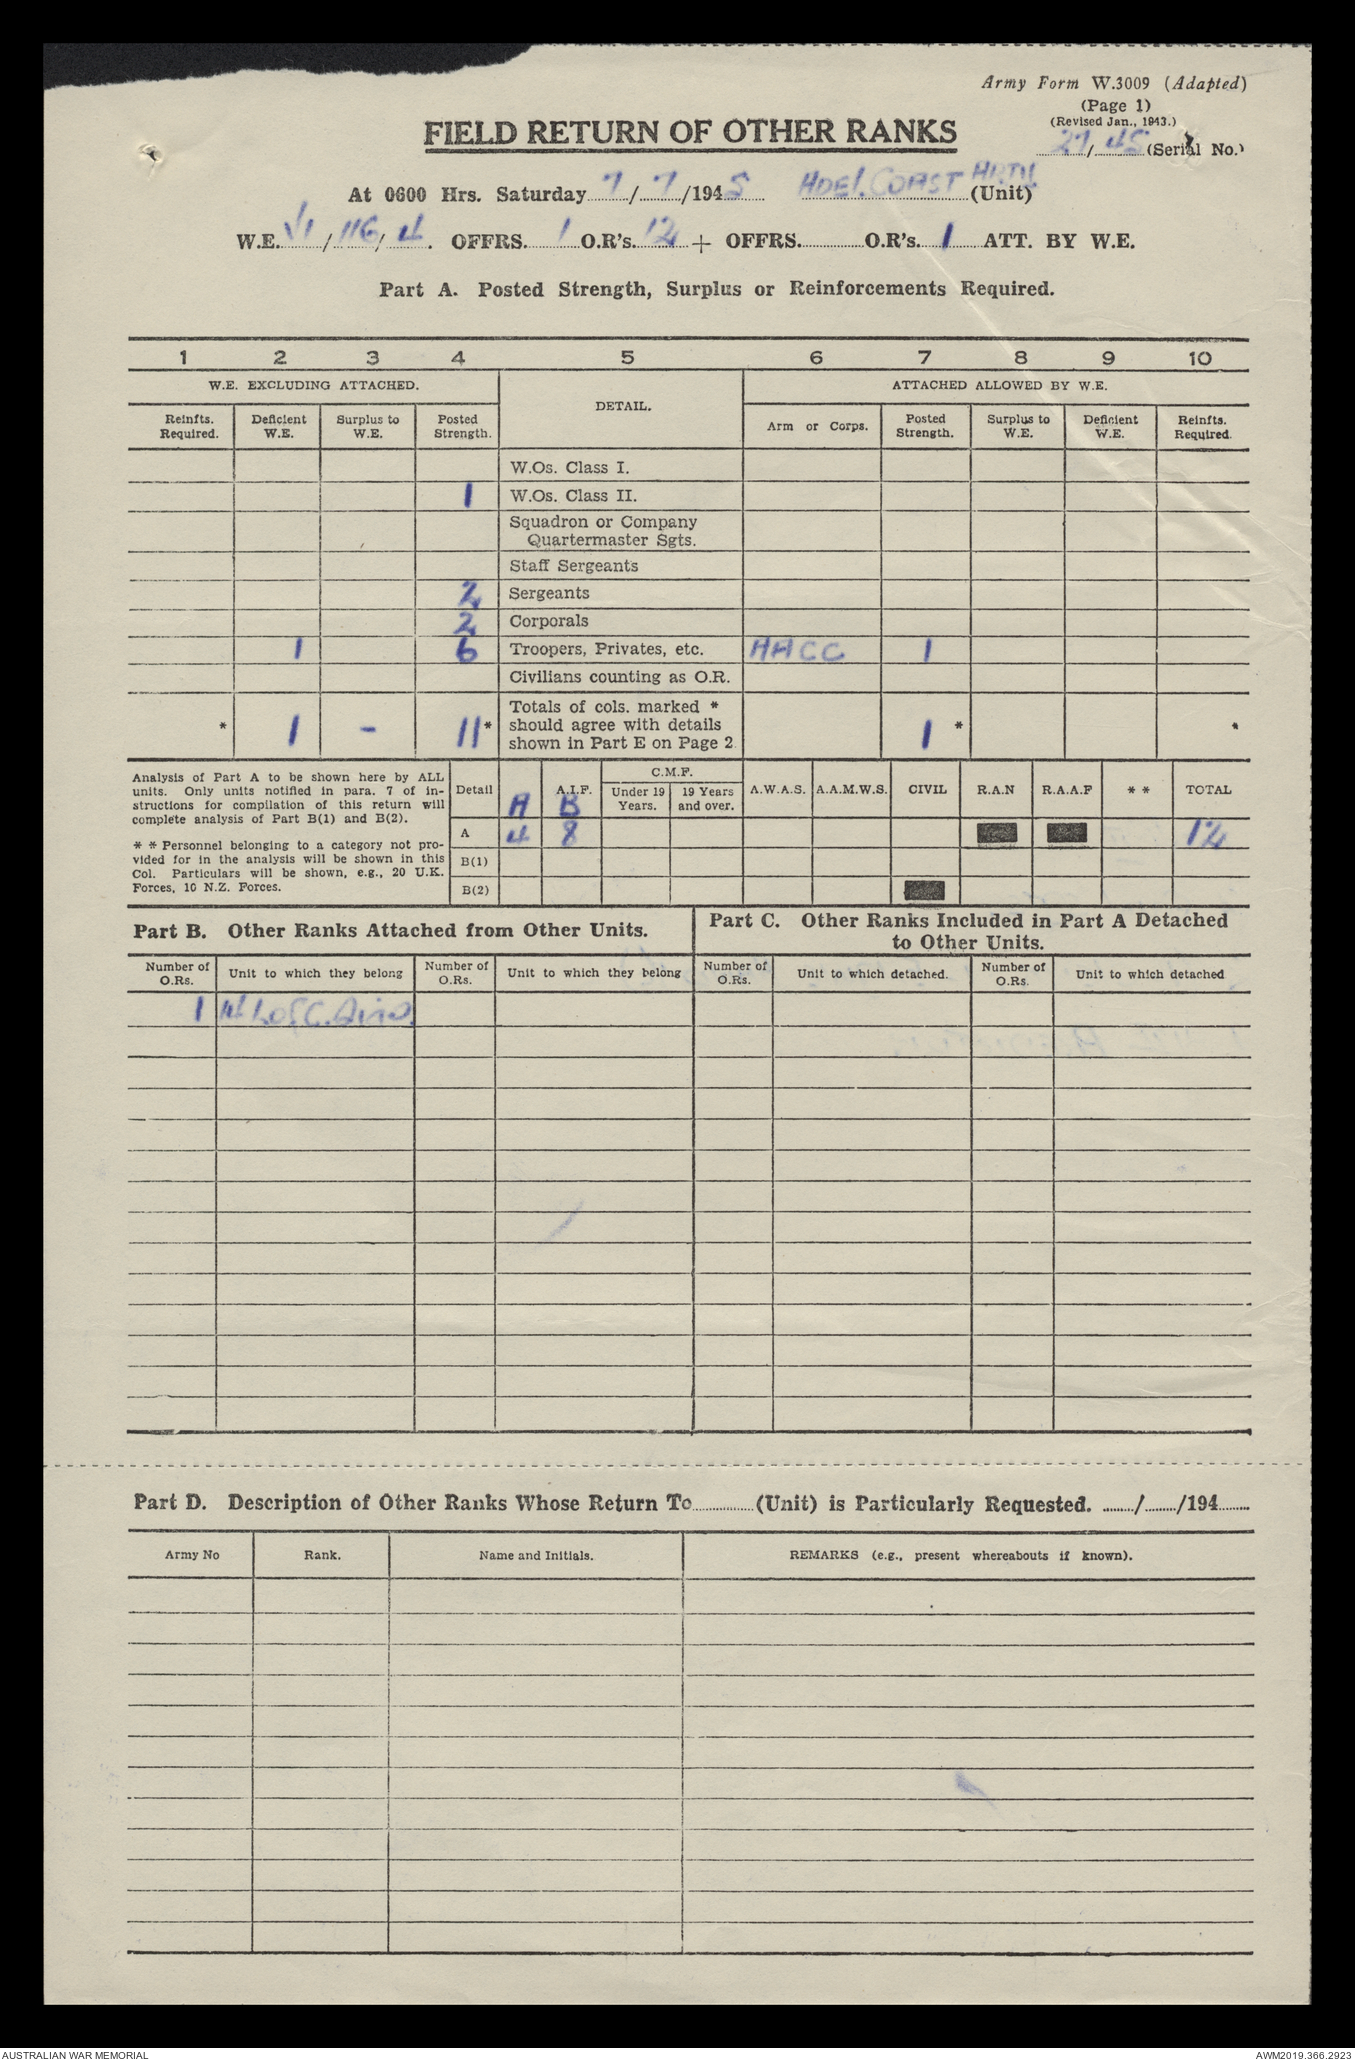 Army Form W.3009 (Adapted)
(Page 1)
(Revised Jan., 1943.)
FIELD RETURN OF OTHER RANKS
27/45 (Serial No.)
At 0600 Hrs. Saturday 7/7/1945 ADEL. COAST ARTY (Unit)
W.E. VI/116/4. OFFRS. 1 O.R's. 12 + OFFRS. O.R's. 1 ATT. BY W.E.
Part A. Posted Strength, Surplus or Reinforcements Required.
1 2 3 4 5 6 7 8 9 10
W.E. EXCLUDING ATTACHED. DETAIL. ATTACHED ALLOWED BY W.E.
Reinfts. Required. Deficient W.E. Surplus to W.E. Posted Strength. Arm or Corps. Posted Strength. Surplus to W.E. Deficient W.E. Reinfts. Required.
W.Os. Class I.
1 W.Os. Class II.
Squadron or Company
Quartermaster Sgts.
Staff Sergeants
2 Sergeants
2 Corporals
1 6 Troopers, Privates, etc. AACC 1
Civilians counting as O.R.
Totals of cols. marked *
* 1 - 11* should agree with details 1 * *
shown in Part E on Page 2.
Analysis of Part A to be shown here by ALL
units. Only units notified in para. 7 of in-
structions for compilation of this return will
complete analysis of Part B(1) and B(2).
* * Personnel belonging to a category not pro-
vided for in the analysis will be shown in this
Col. Particulars will be shown, e.g., 20 U.K.
Forces, 10 N.Z. Forces.
Detail A A.I.F. B C.M.F. Under 19 Years. 19 Years and over. A.W.A.S. A.A.M.W.S. CIVIL R.A.N R.A.A.F * * TOTAL
A 4 8 12
B(1)
B(2)
Part B. Other Ranks Attached from Other Units.
Part C. Other Ranks Included in Part A Detached
to Other Units.
Number of O.Rs. Unit to which they belong Number of O.Rs. Unit to which they belong Number of O.Rs. Unit to which detached. Number of O.Rs. Unit to which detached
1 L of C.
Part D. Description of Other Ranks Whose Return To (Unit) is Particularly Requested. / /194
Army No Rank. Name and Initials. REMARKS (e.g., present whereabouts if known).
AUSTRALIAN WAR MEMORIAL AWM2019.366.2923